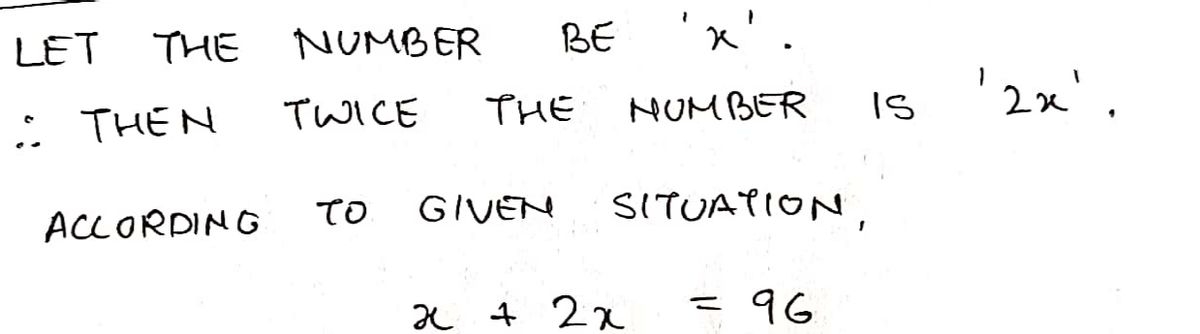 LET THE NUMBER BE 'x'.
∴ THEN TWICE THE NUMBER IS '2x'.
ACCORDING TO GIVEN SITUATION,
x + 2x = 96